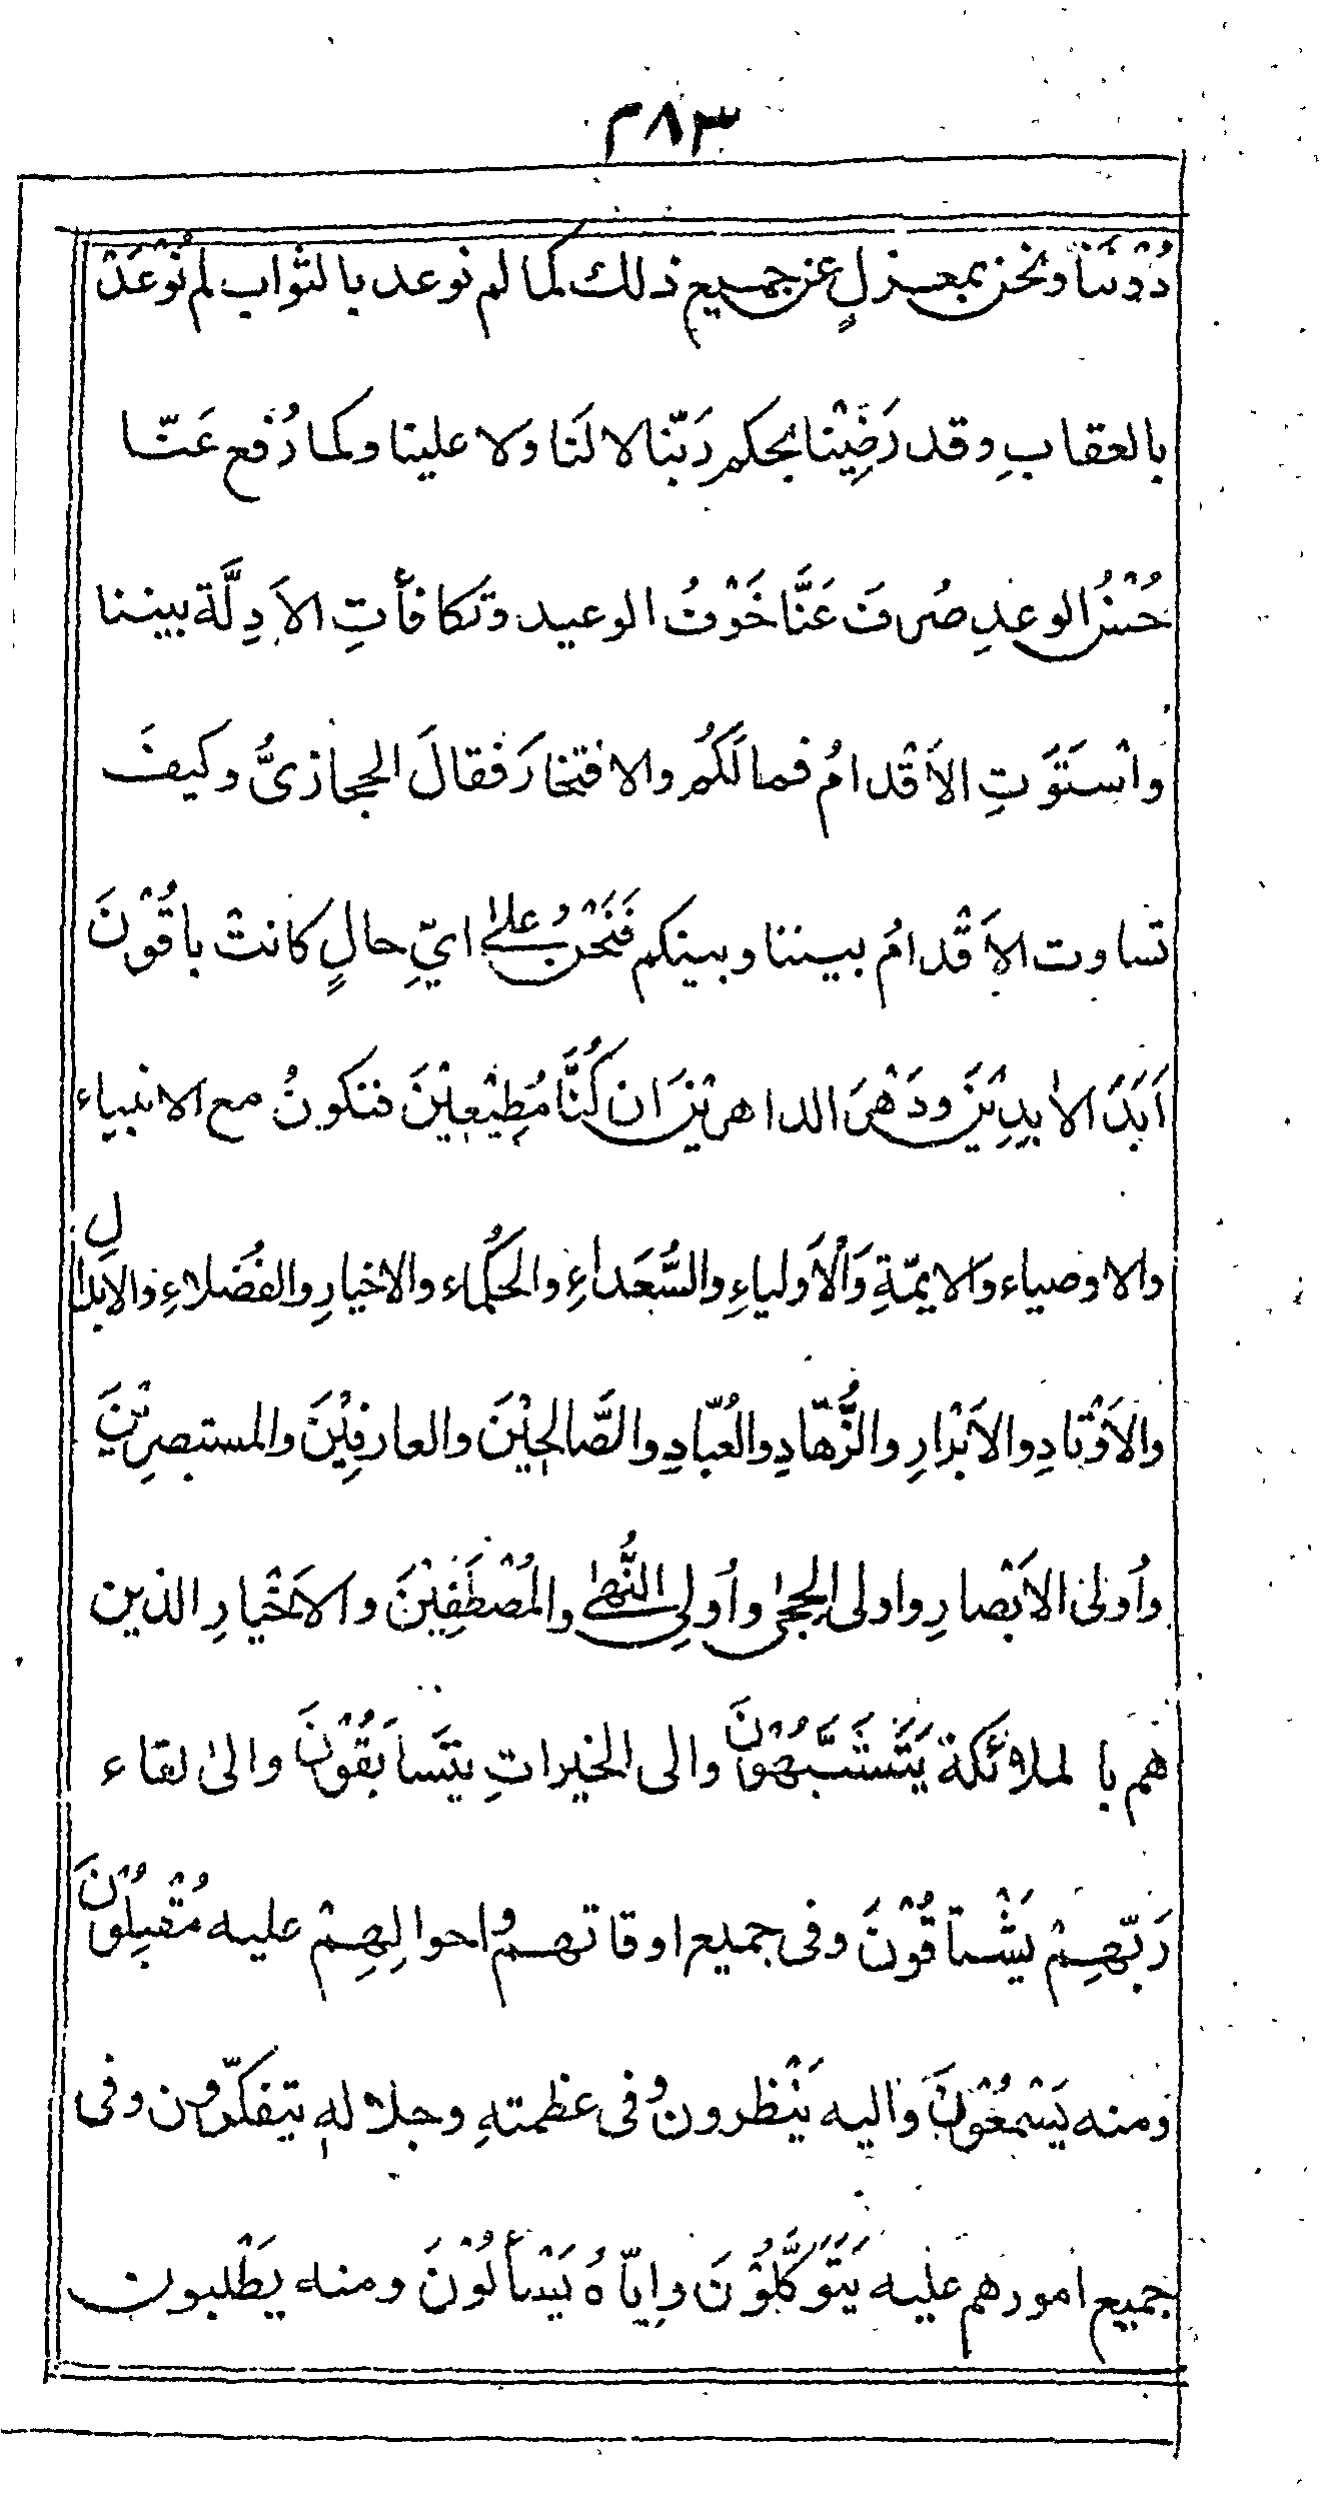 ٢٨٣
دُوْنَنَا ونحن بمعزلٍ عن جميع ذلك كما لم نوعد بالثواب لم نُوْعَدْ
بالعقابِ وقد رَضِيْنا بحكم رَبّنا لا لَنا ولا علينا وكما رُفع عَنّا
حُسْنُ الوعدِ صُرفَ عَنَّا خَوْفُ الوعيد وتكافأتِ الاَدِلَّة بيننا
واسْتَوَتِ الاَقْدامُ فمالَكُم والافتخارَ فقالَ الحجازىُّ وكيفَ
تساوت الاَقْدامُ بيننا وبينكم فَنَحْنُ علىٰ ايِّ حالٍ كانتْ باقُوْنَ
اَبَدَ الاٰبِدِيْنَ ودَهْرَ الداهرِيْنَ ان كُنَّا مُطِيْعِيْنَ فنكونُ مع الانبياء
والاوصياء والايمّةِ وَالْاَولياءِ والسُّعَداءِ والحُكماء والاخيارِ والفُضَلاءِ والابدالِ
والاَوْتادِ والاَبْرارِ والزُّهّادِ والعُبّادِ والصَّالحِيْنَ والعارفِيْنَ والمستبصرِيْنَ
واُولى الاَبْصارِ واولى الحجىٰ واُولِى النُّهىٰ والمُصْطَفِيْنَ والاَخْيارِ الذين
هم بالملائكة يَتَشَبَّهُوْنَ والى الخيراتِ يتَسابَقُوْنَ والىٰ لقاء
رَبّهِمْ يَشْتاقُوْنَ وفى جميع اوقاتهم واحوالِهِمْ عليه مُقْبِلُوْنَ
ومنه يَسْمَعُوْنَ واليه يَنْظرون وفى عظمتهِ وجلالهِ يتفكّرون وفى
جميع امورهم عليه يَتَوَكَّلُوْنَ واِيّاهُ يَسْأَلُوْنَ ومنه يَطْلبون